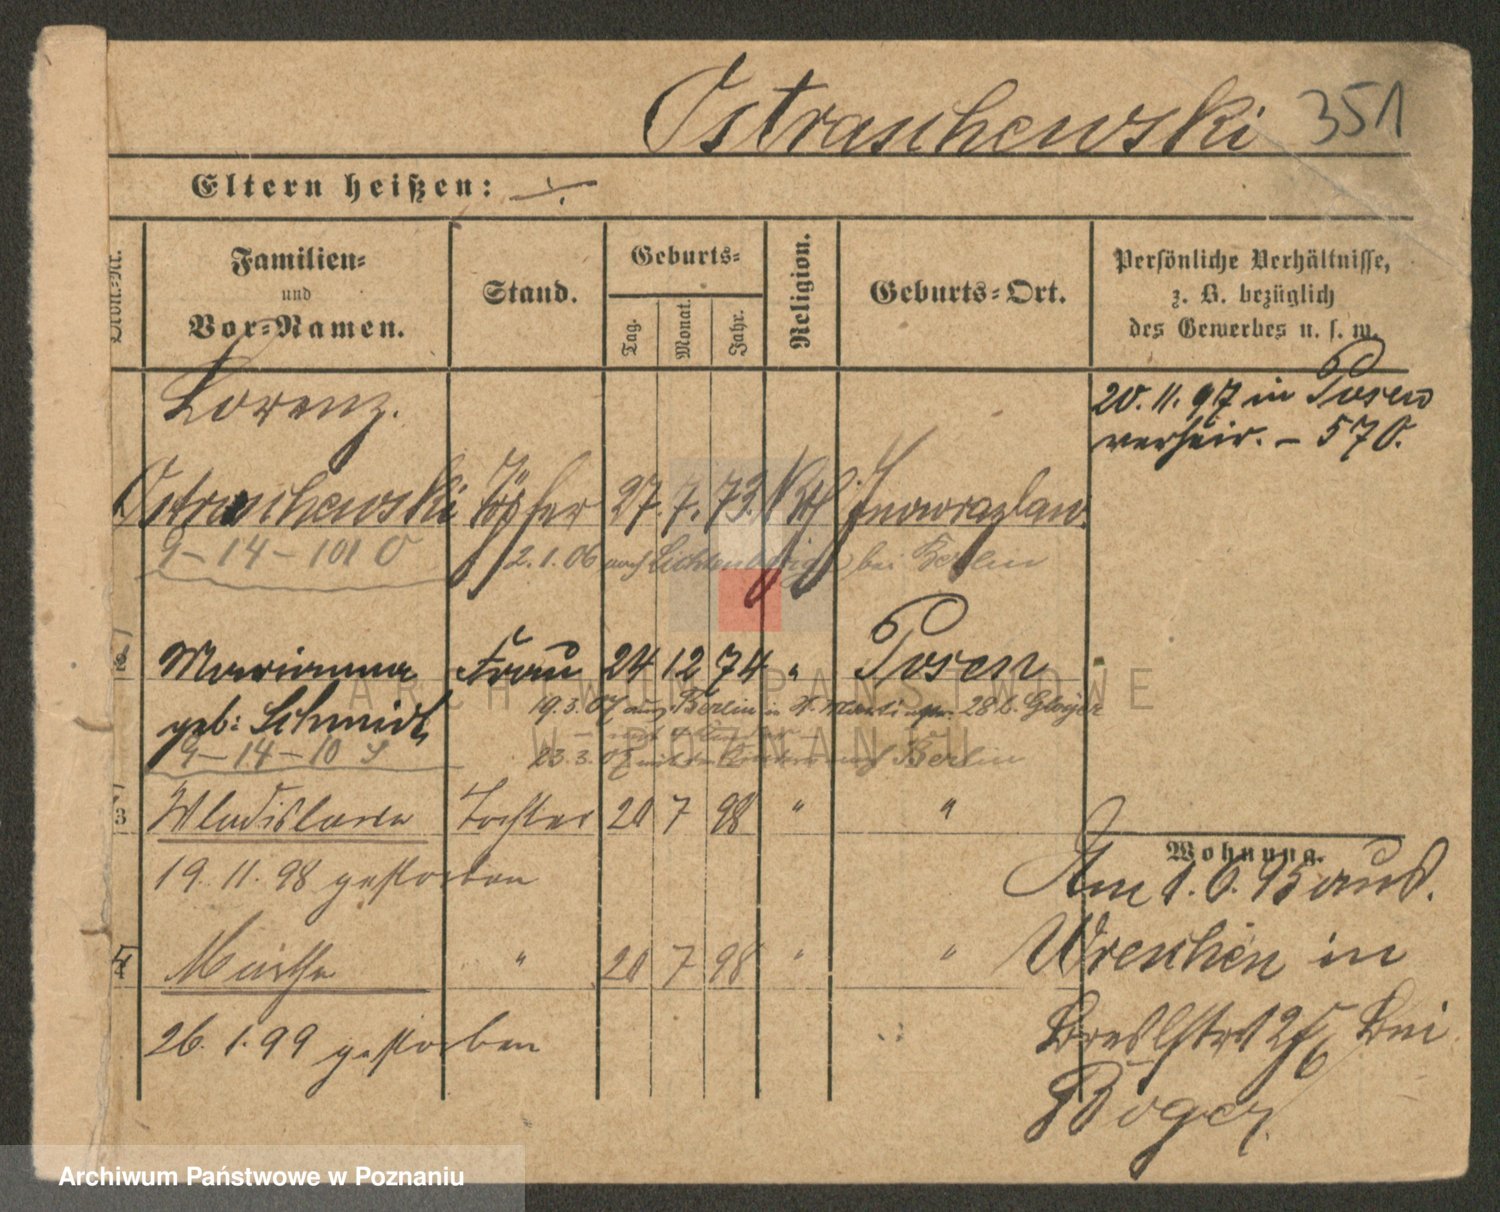 Ostraschewski 351
Eltern heißen: ÷
Ordn.-Nr.
Familien-
und
Vor-Namen.
Stand.
Geburts-
Tag.
Monat.
Jahr.
Religion.
Geburts-Ort.
Persönliche Verhältnisse,
z. B. bezüglich
des Gewerbes u. s. w.
Lorenz.
20. 11. 97 in Posen
verheir. – 570.
Ostraschewski Töpfer 27. 7. 73. Kth Inowrazlaw.
9 – 14 – 101 O
2. 1. 06 nach Lichtenberg bei Berlin
2 Marianna Frau 24 12 74 " Posen
geb: Schmidt
19. 3. 07 aus Berlin in
9 – 14 – 10 S
23. 3. 07 Berlin
3 Wladislawa Tochter 20 7 98 " "
19. 11. 98 gestorben
Wohnung.
Am 1. 6. 95 aus.
4 Martha " 20 7 98 " "
Wreschen in
26. 1. 99 gestorben
bei
Boger
ARCHIWUM PAŃSTWOWE
W POZNANIU
Archiwum Państwowe w Poznaniu